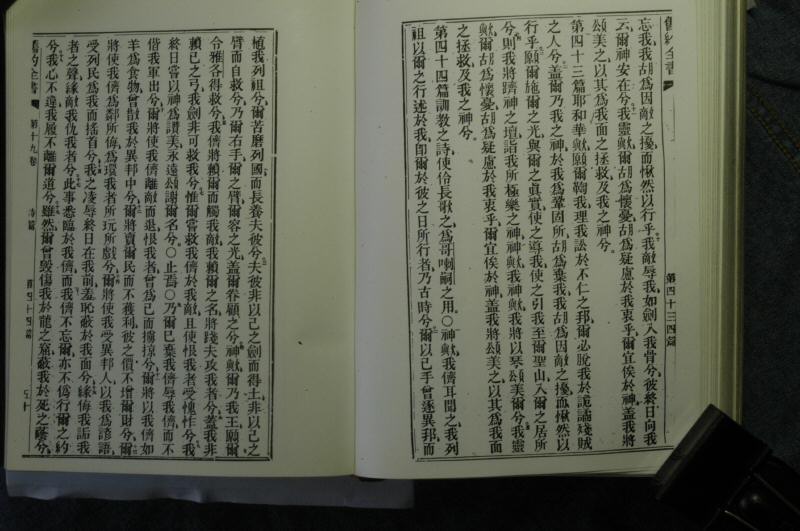 舊約全書
第四十三四篇
忘我、我胡爲因敵之擾而愀然以行乎、我敵辱我、如劍入我骨兮、彼終日向我
云、爾神安在兮、我靈歟、爾胡爲懷憂、胡爲疑慮於我衷乎、爾宜俟於神、蓋我將
頌美之、以其爲我面之拯救、及我之神兮、
第四十三篇耶和華歟、願爾鞫我、理我訟於不仁之邦、爾必脫我於詭譎殘賊
之人兮、蓋爾乃我之神、於我爲鞏固所、胡爲棄我、我胡爲因敵之擾而愀然以
行乎、願爾施爾之光、與爾之眞實、使之導我、使之引我至爾聖山、入爾之居所
兮、則我將躋神之壇、詣我所極樂之神、神歟、我神歟、我將以琴頌美爾兮、我靈
歟、爾胡爲懷憂、胡爲疑慮於我衷乎、爾宜俟於神、蓋我將頌美之、以其爲我面
之拯救、及我之神兮、
第四十四篇訓敎之詩、使伶長歌之、爲哥喇嗣之用、○神歟、我儕耳聞之、我列
祖以爾之行述於我、卽爾於彼之日所行者、乃古時兮、爾以己手曾逐異邦、而
植我列祖兮、爾苦磨列國、而長養夫彼兮、夫彼非以己之劍而得土、非以己之
臂而自救兮、乃爾右手、爾之臂、爾容之光、蓋爾眷顧之兮、神歟、爾乃我王、願爾
令雅各得救兮、我儕將賴爾而觸我敵、我賴爾之名、將踐夫攻我者兮、蓋我非
賴己之弓、我劍非可救我兮、惟爾嘗救我儕於我敵、且使恨我者受愧怍兮、我
終日嘗以神爲讚美、永遠頌謝爾名兮、○止焉○乃爾已棄我儕、辱我儕、而不
偕我軍出兮、爾將使我儕離敵而退、恨我者曾爲己而擄掠兮、爾將以我儕如
羊爲食物、曾散我於異邦中兮、爾將賣爾民而不獲利、彼之價不增爾財兮、爾
將使我儕爲鄰所侮、爲環我者所玩所戲兮、爾將使我受異邦人以我爲諺語、
受列民爲我而搖首兮、我之凌辱終日在我前、羞恥蔽於我面兮、緣侮我詬我
者之聲、緣敵我仇我者兮、此事悉臨於我儕、而我儕不忘爾、亦不僞行爾之約
兮、我心不違、我履不離爾道兮、雖然爾曾毀傷我於龍之窟、蔽我於死之蔭兮、
舊約全書
第十九卷
詩篇
第四十四篇
五十